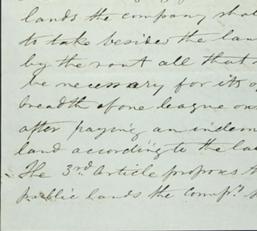 lands the company shal
to take besides the lan
by the rout all that
be necessary for its
breadth of one league on
after paying an indem
land according to the la
The 3rd. article propons t
public lands the comp.y